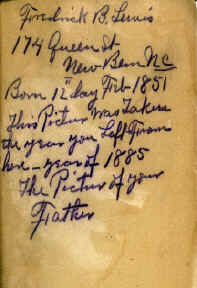 Fredrick B. Lewis
174 Queen St
New Bern NC
Born 12" day Feb 1851
This Pictur was Taken
the year you Left From
here - year of 1885
The Pictur of your
Father